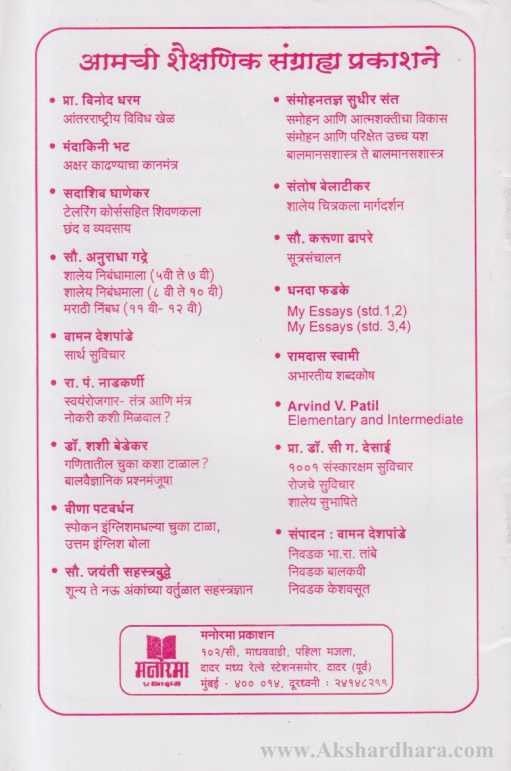 आमची शैक्षणिक संग्राह्य प्रकाशने
• प्रा. विनोद धरम
आंतरराष्ट्रीय विविध खेळ
• मंदाकिनी भट
अक्षर काढण्याचा कानमंत्र
• सदाशिव घाणेकर
टेलरिंग कोर्ससहित शिवणकला
छंद व व्यवसाय
• सौ. अनुराधा गद्रे
शालेय निबंधामाला (५वी ते ७ वी)
शालेय निबंधमाला (८ वी ते १० वी)
मराठी निंबध (११ वी- १२ वी)
• वामन देशपांडे
सार्थ सुविचार
• रा. पं. नाडकर्णी
स्वयंरोजगार- तंत्र आणि मंत्र
नोकरी कशी मिळवाल ?
• डॉ. शशी बेडेकर
गणितातील चुका कशा टाळाल ?
बालवैज्ञानिक प्रश्नमंजूषा
• वीणा पटवर्धन
स्पोकन इंग्लिशमधल्या चुका टाळा,
उत्तम इंग्लिश बोला
• सौ. जयंती सहस्त्रबुद्धे
शून्य ते नऊ अंकांच्या वर्तुळात सहस्त्रज्ञान
• संमोहनतज्ञ सुधीर संत
समोहन आणि आत्मशक्तीधा विकास
संमोहन आणि परिक्षेत उच्च यश
बालमानसशास्त्र ते बालमानसशास्त्र
• संतोष बेलाटीकर
शालेय चित्रकला मार्गदर्शन
• सौ. करूणा ढापरे
सूत्रसंचालन
• धनदा फडके
My Essays (std.1,2)
My Essays (std. 3,4)
• रामदास स्वामी
अभारतीय शब्दकोष
• Arvind V. Patil
Elementary and Intermediate
• प्रा. डॉ. सी ग. देसाई
१००१ संस्कारक्षम सुविचार
रोजचे सुविचार
शालेय सुभाषिते
• संपादन : वामन देशपांडे
निवडक भा.रा. तांबे
निवडक बालकवी
निवडक केशवसूत
मनोरमा
प्रकाशन
मनोरमा प्रकाशन
१०२/सी, माधववाडी, पहिला मजला,
दादर मध्य रेल्वे स्टेशनसमोर, दादर (पूर्व)
मुंबई - ४०० ०१४, दूरध्वनी : २४१४८२९९
www.Akshardhara.com